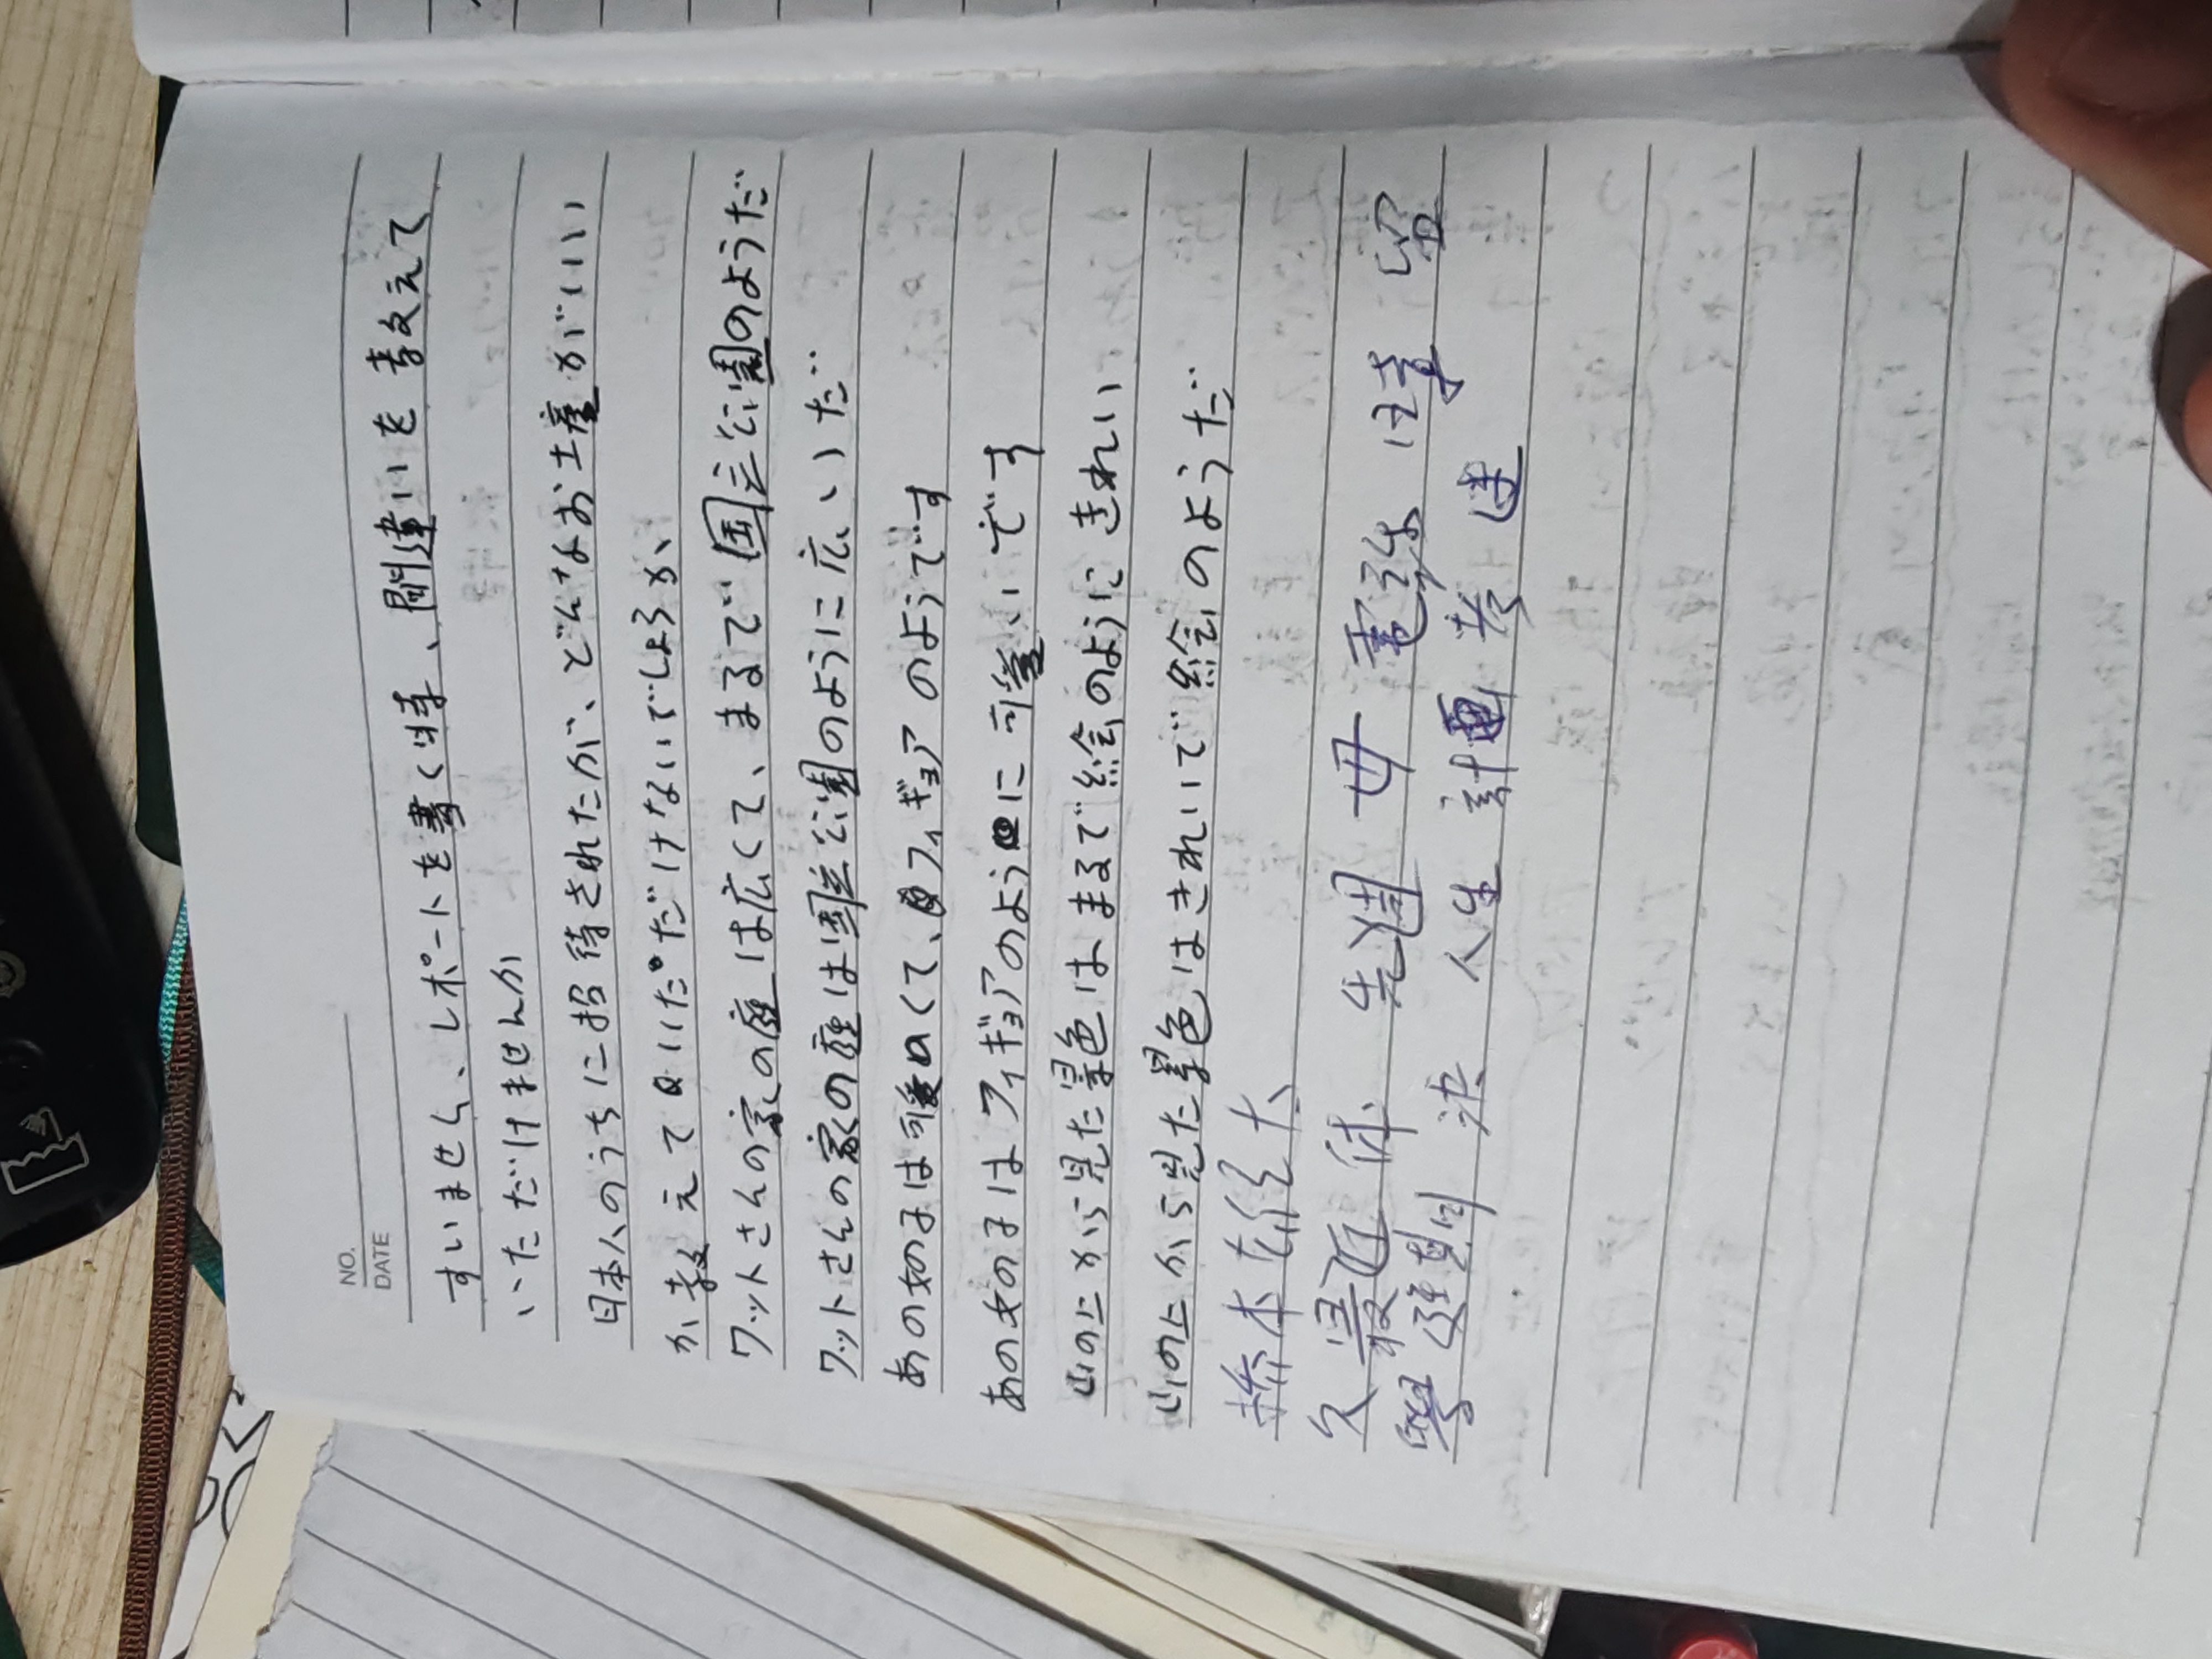 NO.
DATE
すいません、レポートを書く時、間違いを教えて
いただけませんか
日本人のうちに招待されたが、どんなお土産がいい
か教えていただだけないでしょうか、
ワットさんの家の庭は広くて、まるで国立公園のようだ
ワットさんの家の庭は国立公園のように広いだ
あの女の子は可愛くて、フィギョアのようです
あの女の子はフィギョアのように可愛いです
山の上から見た景色はまるで絵のようにきれい
山の上から見た景色はきれいで絵のようだ
橋本
久 最近 休 先週 母 電話 時 留
学 期 決 人生 計画 考 迷